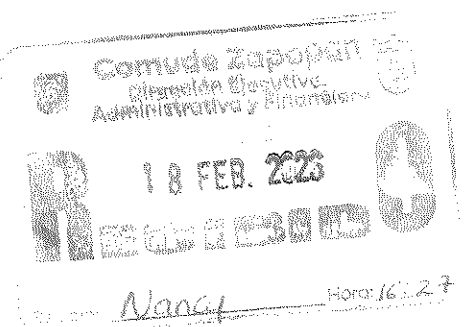 Comude Zapopan
Dirección Ejecutiva
Administrativa y Financiera
18 FEB. 2026
RECIBIDO
Nancy Hora: 16:27